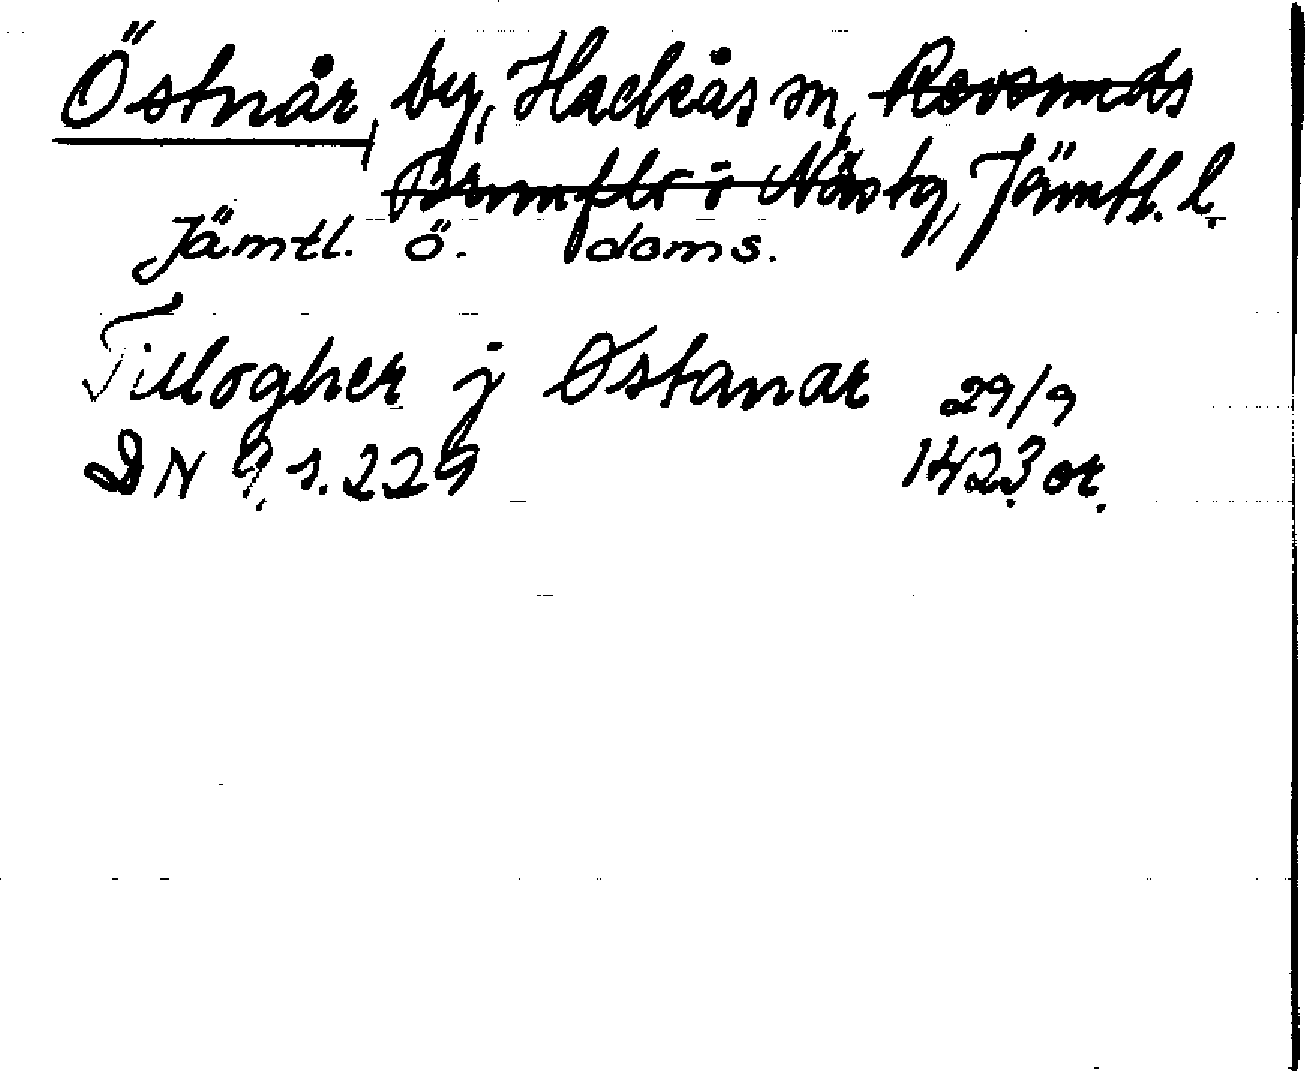 Östnår, by, Hackås sn, Revsunds
Brunflo o Näs tg, Jämtl. l.
Jämtl. ö. doms.
Tillogher j Østanar 29/9
DN 9, s. 229 1423 or.